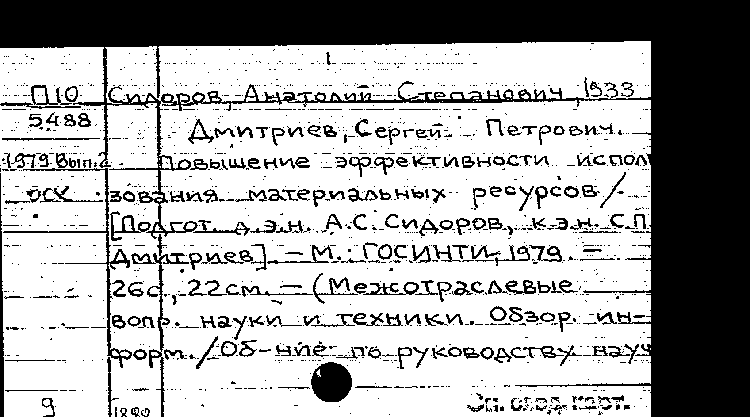 1
П10 Сидоров, Анатолий Степанович, 1933
5488 Дмитриев, Сергей Петрович.
1979 Вып.2 Повышение эффективности исполь
зования материальных ресурсов /
[Подгот. д.э.н. А.С. Сидоров, к.э.н. С.П.
Дмитриев]. — М.: ГОСИНТИ, 1979. —
26с., 22см. — (Межотраслевые
вопр. науки и техники. Обзор. ин-
форм. / Об-ние по руководству науч
9